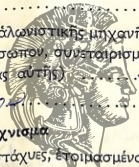 αλωνιστικῆς μηχανῆ
σωπον, συνεταιρισμ
ας αὐτῆς)
χνισμα
τάχυες, ἑτοιμασμέν